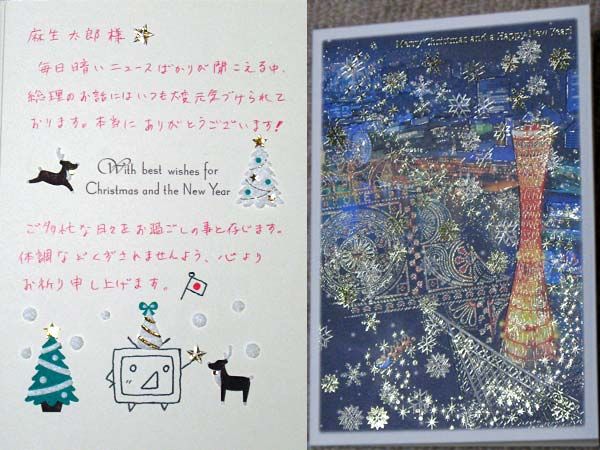 麻生太郎様
毎日暗いニュースばかりが聞こえる中、
総理のお話にはいつも大変元気づけられて
おります。本当にありがとうございます!
With best wishes for
Christmas and the New Year
ご多忙な日々をお過ごしの事と存じます。
体調などくずされませんよう、心より
お祈り申し上げます。
Merry Christmas and a Happy New Year!